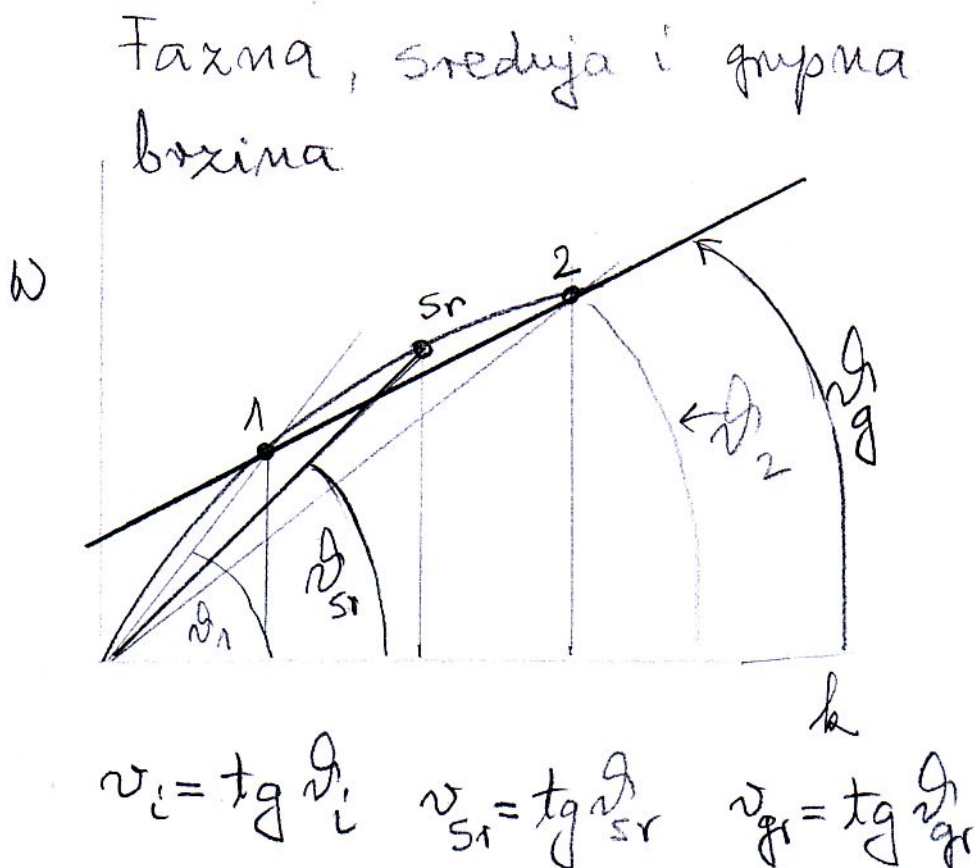 Fazna, srednja i grupna
brzina
ω
1
sr
2
ϑ₁
ϑ_sr
ϑ₂
ϑ_g
k
v_i = tg ϑ_i v_sr = tg ϑ_sr v_gr = tg ϑ_gr